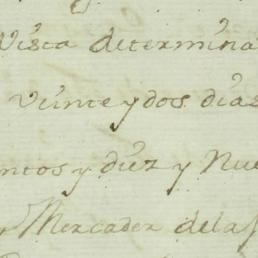 Vista determina
Veinte y dos dias
ntos y diez y Nue
Mercader dela